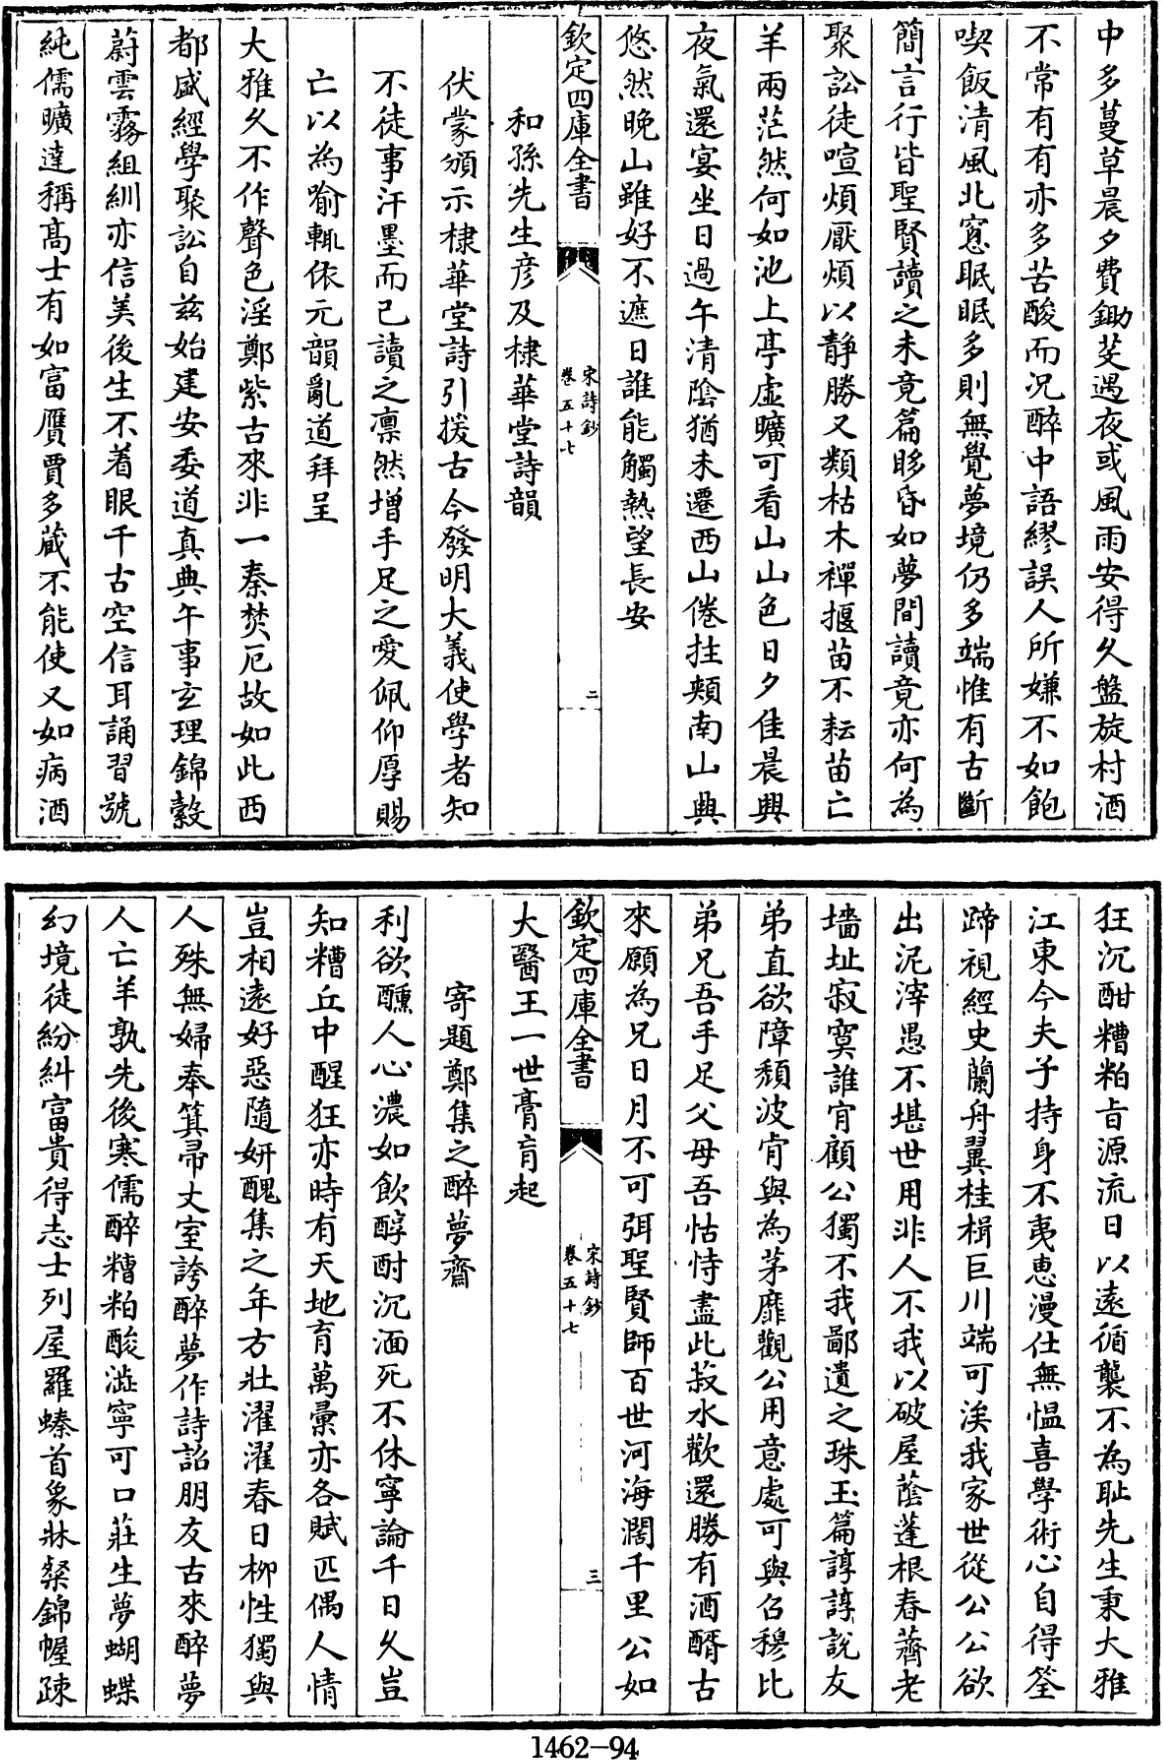 中多蔓草晨夕費鋤芟遇夜或風雨安得久盤旋村酒
不常有有亦多苦酸而况醉中語繆誤人所嫌不如飽
喫飯清風北窓眠眠多則無覺夢境仍多端惟有古斷
簡言行皆聖賢讀之未竟篇眵昏如夢間讀竟亦何為
聚訟徒喧煩厭煩以静勝又類枯木禪揠苗不耘苗亡
羊兩茫然何如池上亭虛曠可看山山色日夕佳晨興
夜氣還宴坐日過午清陰猶未遷西山倦拄頰南山與
悠然晚山雖好不遮日誰能觸熱望長安
欽定四庫全書
宋詩鈔
卷五十七
二
和孫先生彦及棣華堂詩韻
伏蒙頒示棣華堂詩引援古今發明大義使學者知
不徒事汗墨而已讀之凛然增手足之愛佩仰厚賜
亡以為喻輒依元韻亂道拜呈
大雅久不作聲色淫鄭紫古來非一秦焚厄故如此西
都盛經學聚訟自兹始建安委道真典午事玄理錦縠
蔚雲霧組紃亦信美後生不着眼千古空信耳誦習號
純儒曠達稱髙士有如富贋賈多藏不能使又如病酒
狂沉酣糟粕旨源流日以逺循襲不為耻先生秉大雅
江東今夫子持身不夷惠漫仕無愠喜學術心自得筌
蹄視經史蘭舟翼桂楫巨川端可涘我家世從公公欲
出泥滓愚不堪世用非人不我以破屋蔭蓬根春薺老
墻址寂寞誰肯顧公獨不我鄙遺之珠玉篇諄諄說友
弟直欲障頽波肯與為茅靡觀公用意處可與召穆比
弟兄吾手足父母吾怙恃盡此菽水歡還勝有酒醑古
來願為兄日月不可弭聖賢師百世河海濶千里公如
欽定四庫全書
宋詩鈔
卷五十七
三
大醫王一世膏肓起
寄題鄭集之醉夢齋
利欲醺人心濃如飲醇酎沉湎死不休寧論千日久豈
知糟丘中醒狂亦時有天地育萬彚亦各賦匹偶人情
豈相逺好惡隨妍醜集之年方壯濯濯春日栁性獨與
人殊無婦奉箕帚丈室誇醉夢作詩詒朋友古來醉夢
人亡羊孰先後寒儒醉糟粕酸澁寧可口莊生夢蝴蝶
幻境徒紛糾富貴得志士列屋羅螓首象牀粲錦幄踈
1462-94